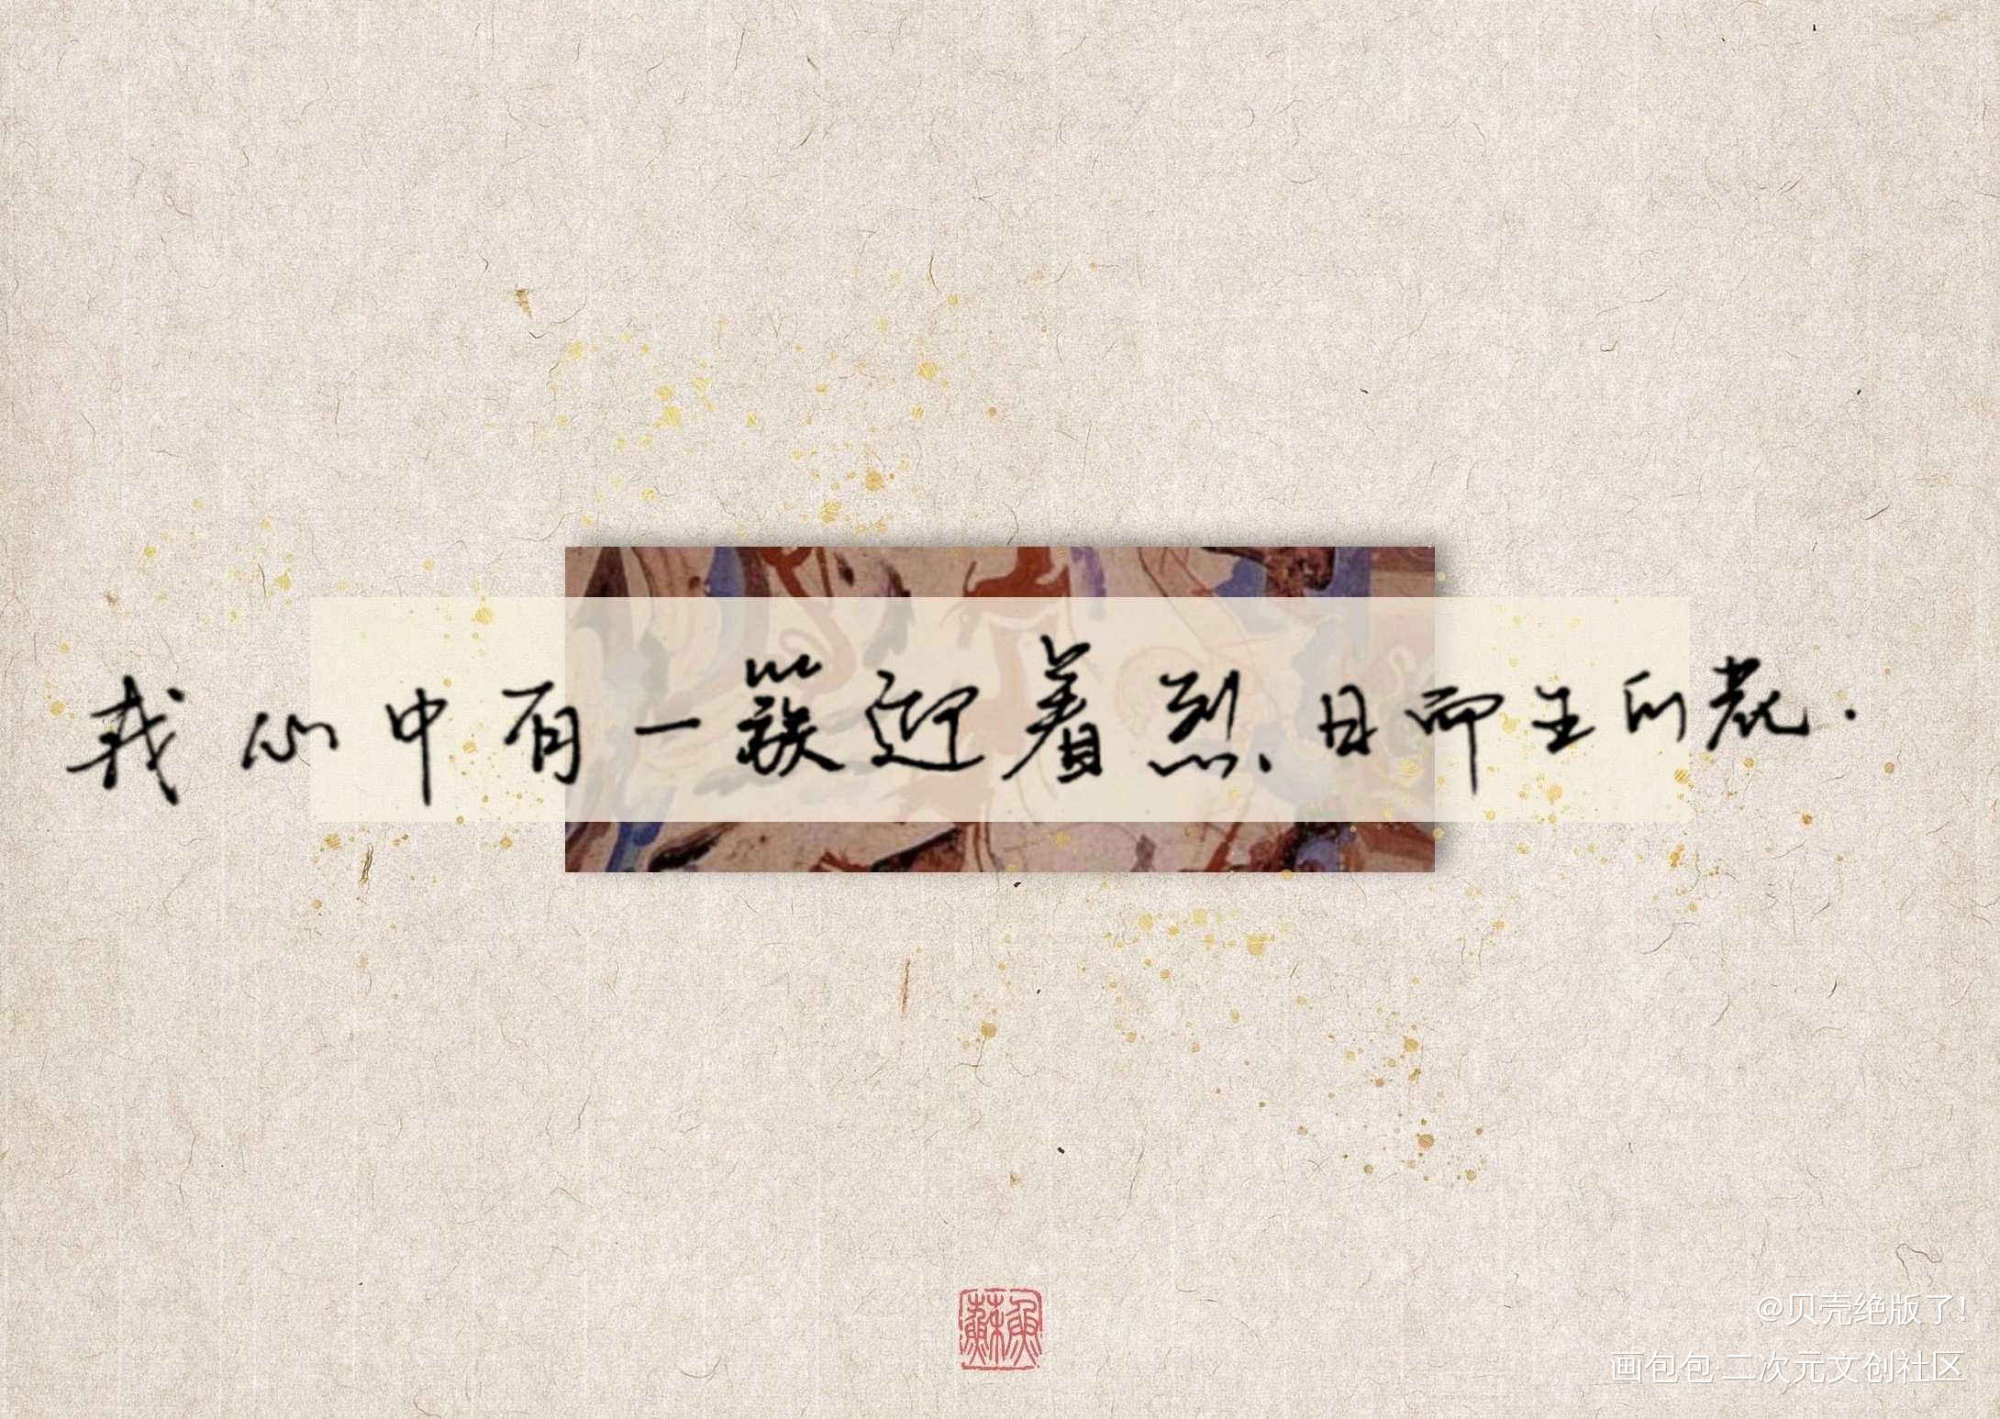 我心中有一簇迎着烈日而生的花.
蘇魚
@贝壳绝版了!
画包包 二次元文创社区